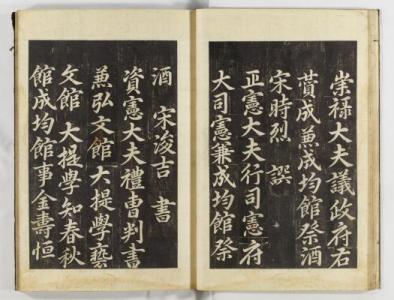 崇祿大夫議政府右
賛成兼成均館祭酒
宋時烈 譔
正憲大夫行司憲府
大司憲兼成均館祭
酒 宋浚吉 書
資憲大夫禮曹判書
兼弘文館大提學藝
文館 大提學知春秋
館成均館事金壽恒